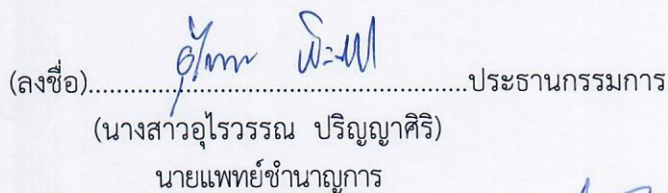 (ลงชื่อ)..................................................ประธานกรรมการ
(นางสาวอุไรวรรณ ปริญญาศิริ)
นายแพทย์ชำนาญการ